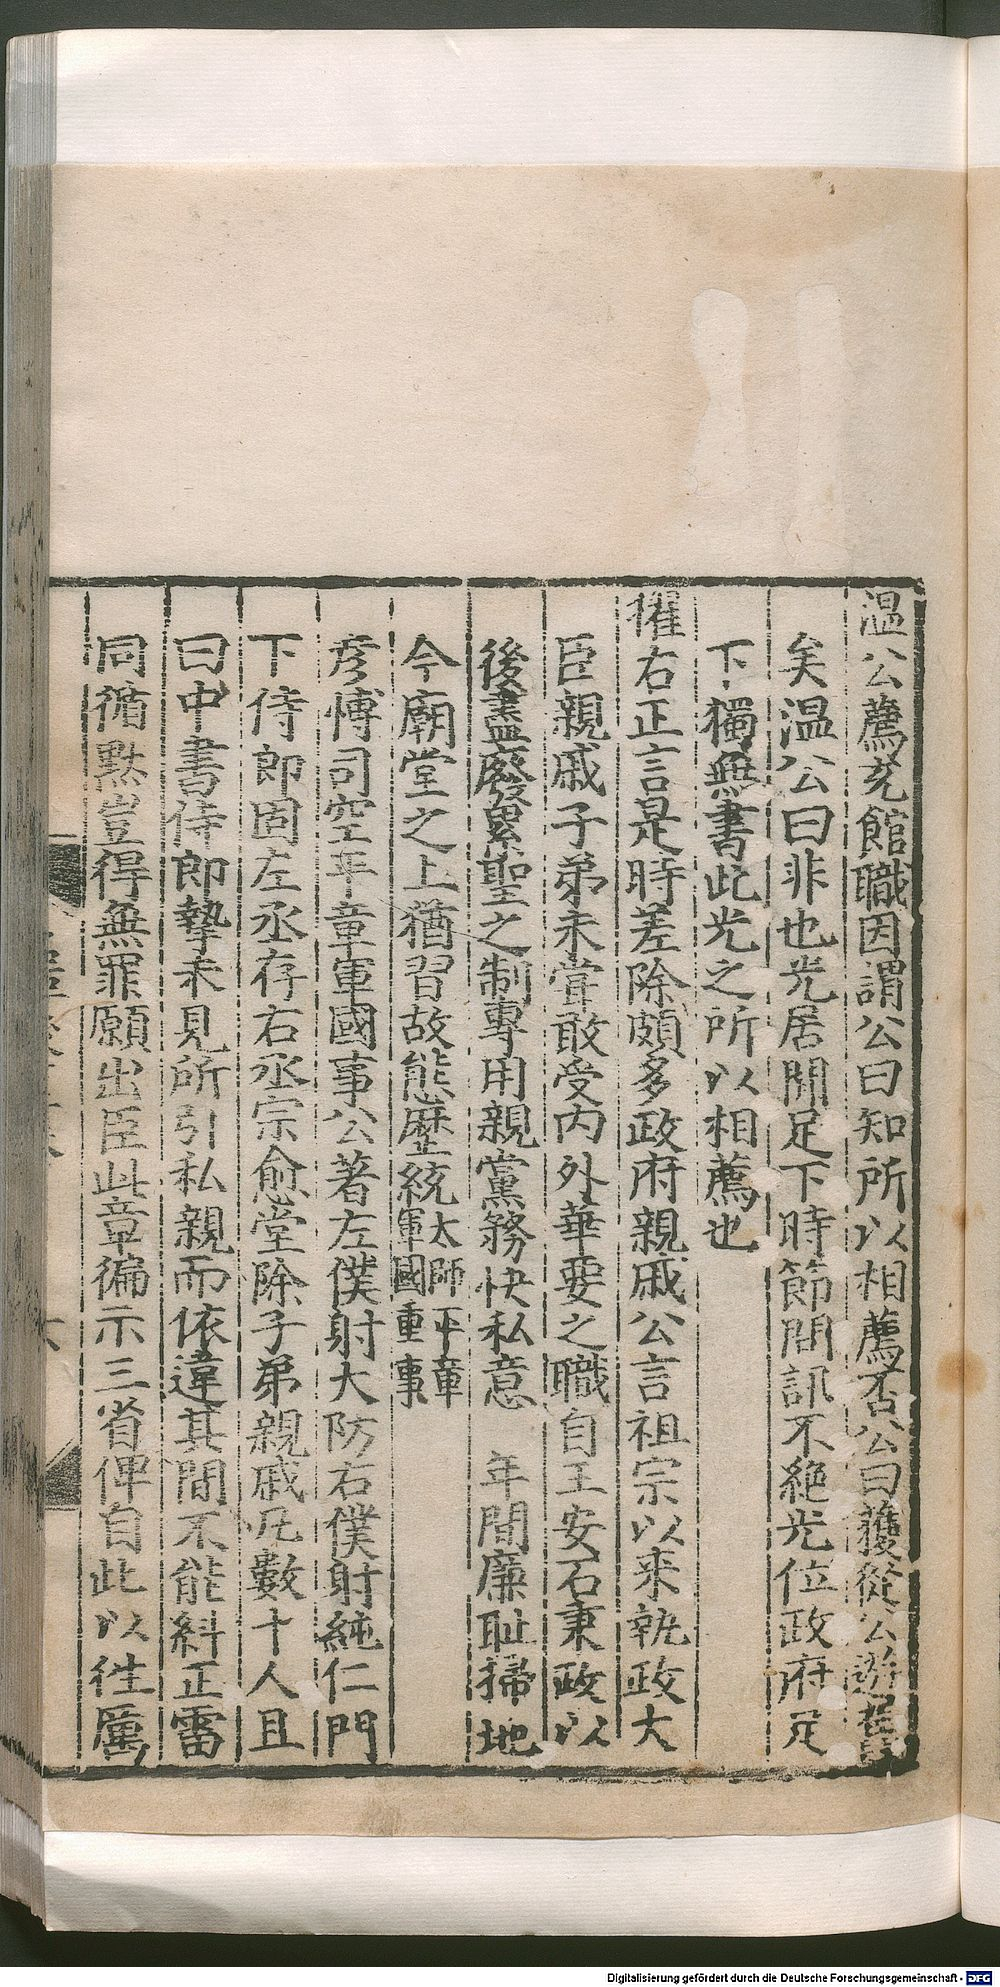 温公薦充館職因謂公曰知所以相薦否公曰獲從公遊舊
矣温公曰非也光居閒足下時節問訊不絶光位政府足
下獨無書此光之所以相薦也
擢右正言是時差除頗多政府親戚公言祖宗以来執政大
臣親戚子弟未嘗敢受内外華要之職自王安石秉政以
後盡廢累聖之制專用親黨務快私意 年間廉耻掃地
今廟堂之上猶習故態歴統太師平章軍國重事
彦愽司空平章軍國事公著左僕射大防右僕射純仁門
下侍郎固左丞存右丞宗愈堂除子弟親戚凡數十人且
曰中書侍郎摯未見所引私親而依違其間不能糾正雷
同循黙豈得無罪願出臣此章徧示三省俾自此以徃厲
六
Digitalisierung gefördert durch die Deutsche Forschungsgemeinschaft - DFG